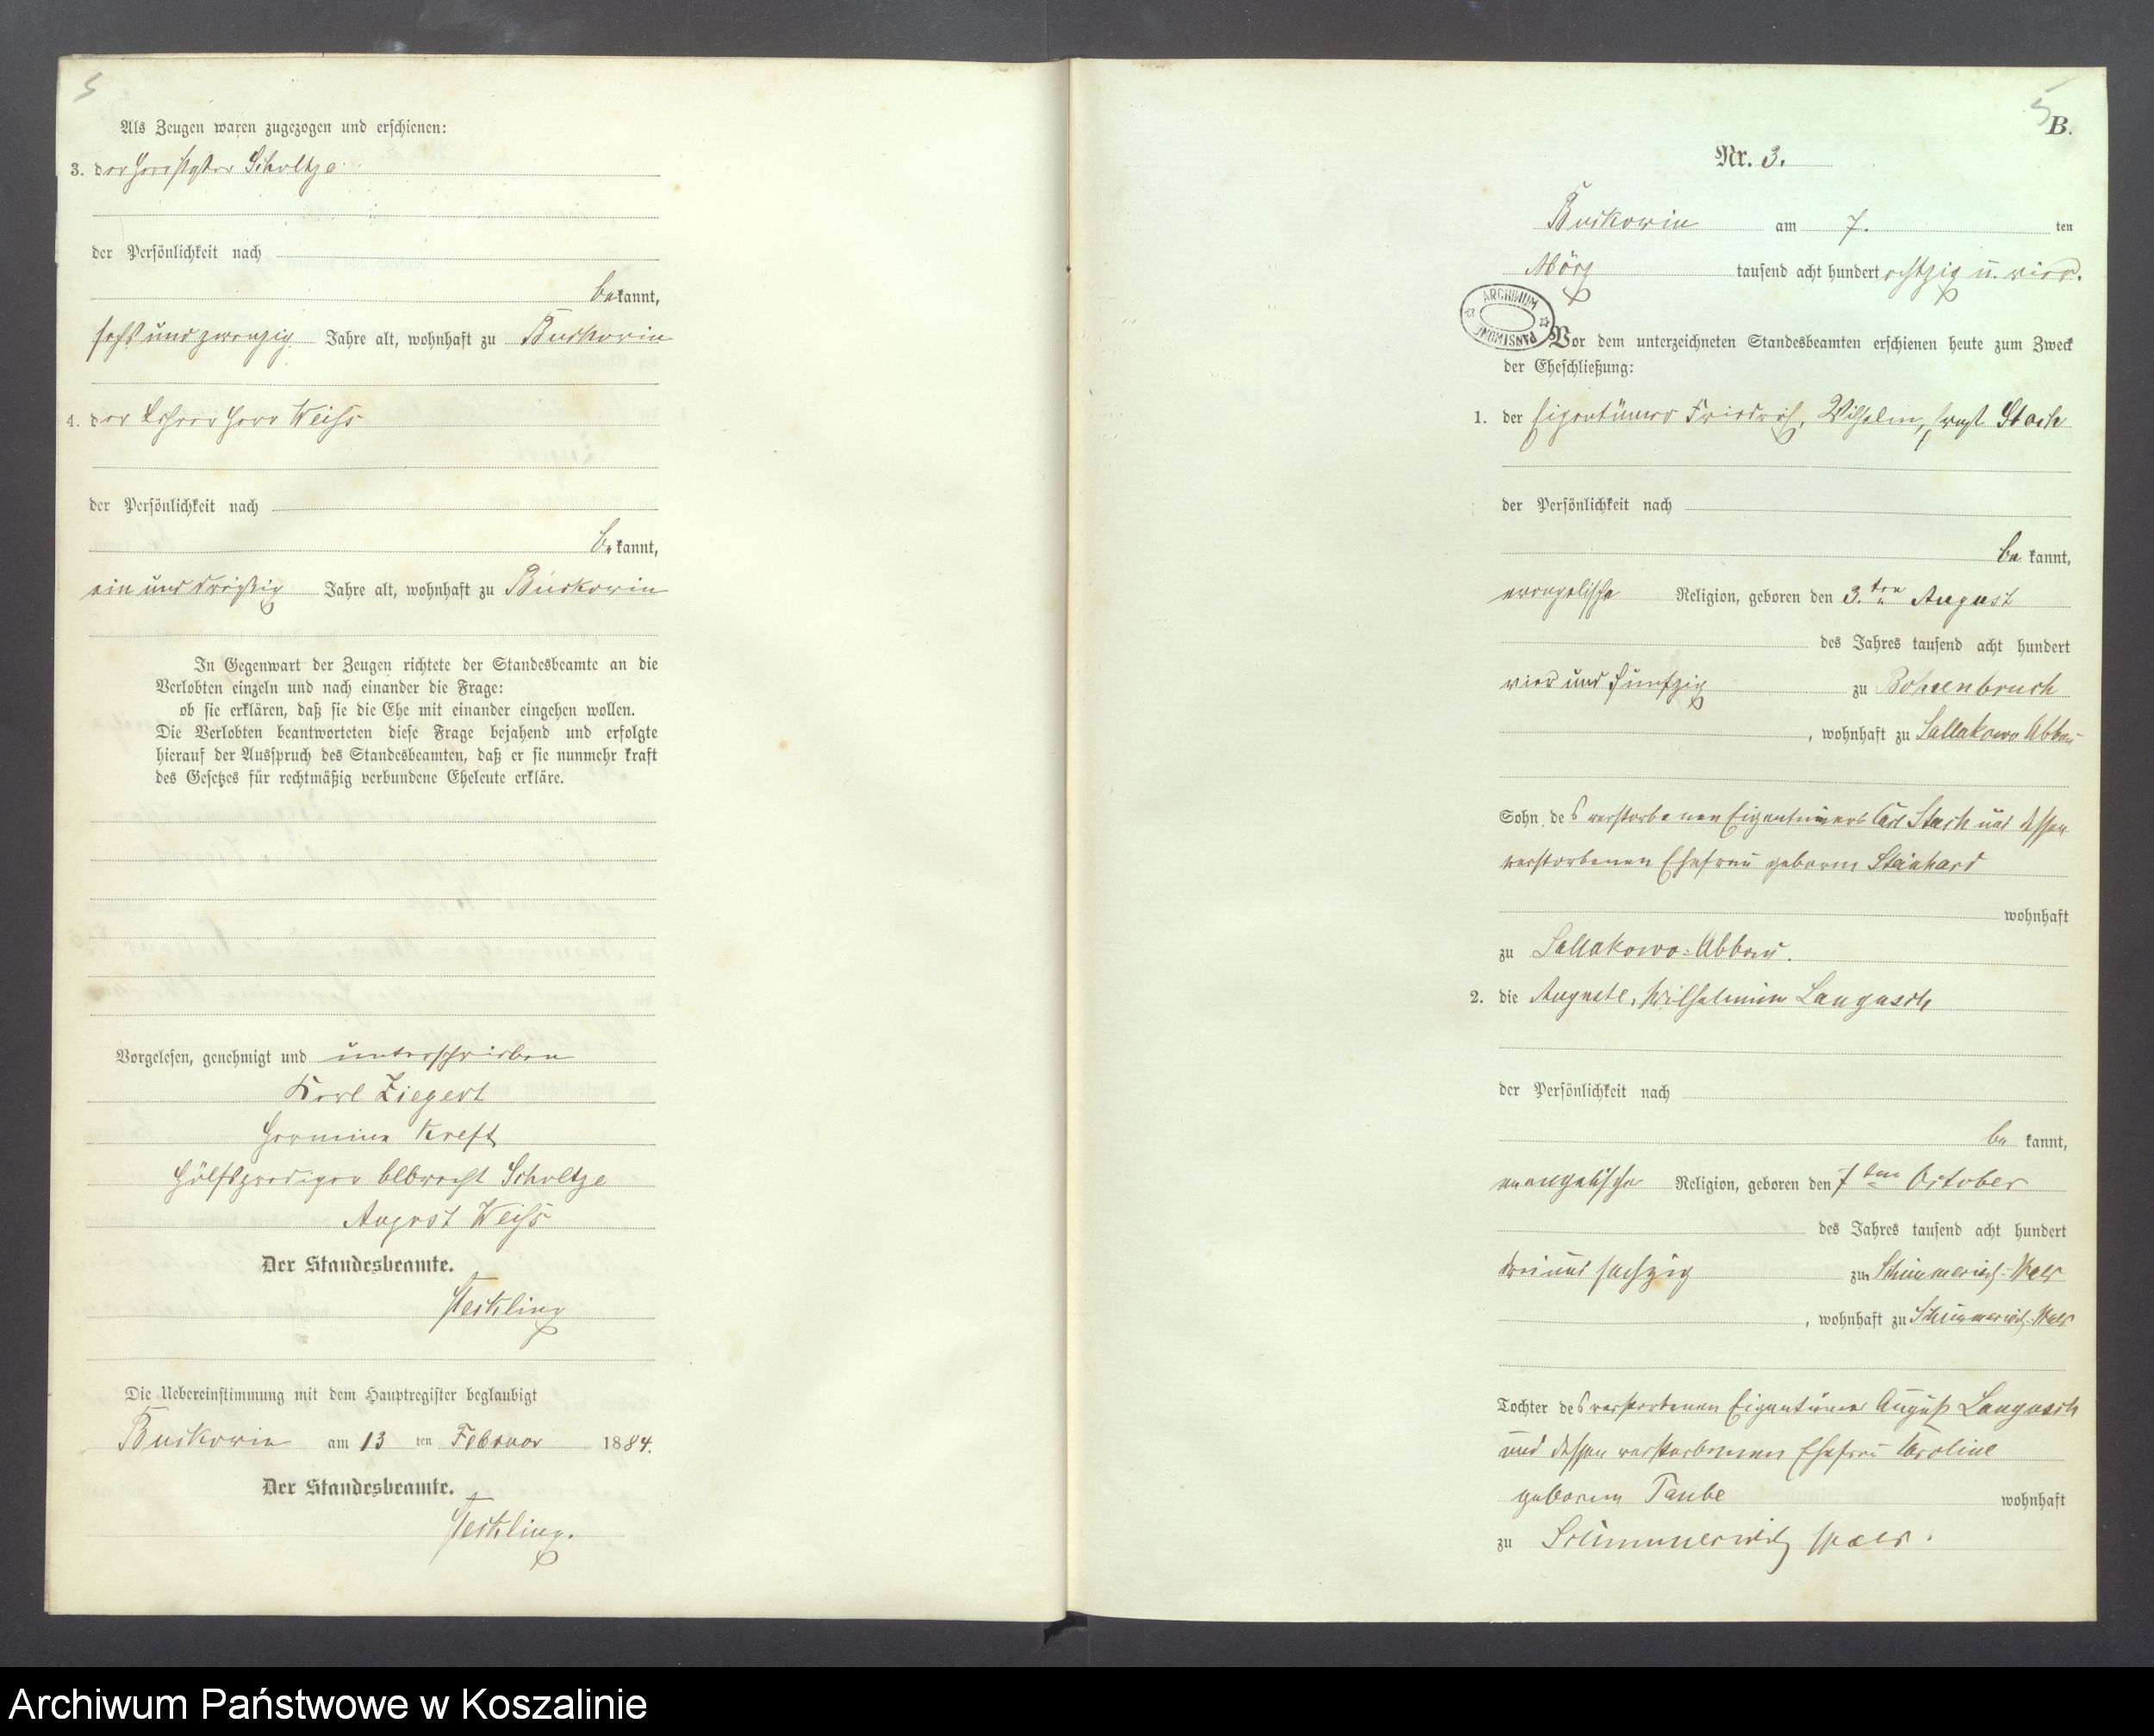 5
Als Zeugen waren zugezogen und erschienen:
3. der Scholtze
der Persönlichkeit nach
bekannt,
sechs und zwanzig Jahre alt, wohnhaft zu Buckowin
4. der Lehrer Herr Weiß
der Persönlichkeit nach
bekannt,
ein und dreißig Jahre alt, wohnhaft zu Buckowin
In Gegenwart der Zeugen richtete der Standesbeamte an die
Verlobten einzeln und nach einander die Frage:
ob sie erklären, daß sie die Ehe mit einander eingehen wollen.
Die Verlobten beantworteten diese Frage bejahend und erfolgte
hierauf der Ausspruch des Standesbeamten, daß er sie nunmehr kraft
des Gesetzes für rechtmäßig verbundene Eheleute erkläre.
Vorgelesen, genehmigt und unterschrieben
Karl Ziegert
Hermine Kreft
Hülfsprediger Albrecht Scholtze
August Weiß
Der Standesbeamte.
Die Uebereinstimmung mit dem Hauptregister beglaubigt
Buckowin am 13 ten Februar 1884.
Der Standesbeamte.
5
B.
Nr. 3.
Buckowin am 7. ten
März tausend acht hundert achtzig u. vier.
ARCHIWUM PAŃSTWOWE
Vor dem unterzeichneten Standesbeamten erschienen heute zum Zweck
der Eheschließung:
1. der Eigentümer Friedrich, Wilhelm, Ernst Stach
der Persönlichkeit nach
be kannt,
evangelische Religion, geboren den 3.ten August
des Jahres tausend acht hundert
vier und fünfzig zu Bohrenbruch
, wohnhaft zu Sallakowo Abbau
Sohn des verstorbenen Eigentümers Carl Stach und dessen
verstorbenen Ehefrau geboren Steinhard
wohnhaft
zu Sallakowo-Abbau.
2. die Auguste, Wilhelmine Langusch
der Persönlichkeit nach
be kannt,
evangelischer Religion, geboren den 7ten October
des Jahres tausend acht hundert
drei und sechzig zu Schimmerwitz
, wohnhaft zu Schimmerwitz
Tochter des verstorbenen Eigentümer August Langusch
und dessen verstorbenen Ehefrau Karoline
geboren Taube wohnhaft
zu Schimmerwitz
Archiwum Państwowe w Koszalinie